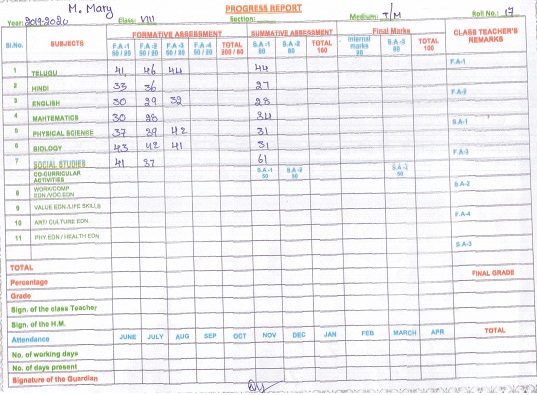 PROGRESS REPORT
M. Mary
Year: 2019-2020 Class: VIII Section: Medium: T/M Roll No.: 17
Sl.No. SUBJECTS FORMATIVE ASSESSMENT SUMMATIVE ASSESSMENT Final Marks CLASS TEACHER'S REMARKS
F.A-1 50/20 F.A-2 50/20 F.A-3 50/20 F.A-4 50/20 TOTAL 200/80 S.A-1 80 S.A-2 80 TOTAL 160 Internal marks 20 S.A-3 80 TOTAL 100
F.A-1
1 TELUGU 41 46 44 44
2 HINDI 33 36 27
F.A-2
3 ENGLISH 30 29 32 28
4 MAHTEMATICS 30 28 34
S.A-1
5 PHYSICAL SCIENCE 37 39 42 31
6 BIOLOGY 43 42 41 31
F.A-3
7 SOCIAL STUDIES 41 37 61
CO-CURRICULAR ACTIVITIES S.A-1 50 S.A-2 50 S.A-3 50
S.A-2
8 WORK/COMP. EDN./VOC.EDN
9 VALUE EDN./LIFE SKILLS
F.A-4
10 ART/ CULTURE EDN.
11 PHY EDN / HEALTH EDN.
S.A-3
TOTAL FINAL GRADE
Percentage
Grade
Sign. of the class Teacher
Sign. of the H.M.
Attendance JUNE JULY AUG SEP OCT NOV DEC JAN FEB MARCH APR TOTAL
No. of working days
No. of days present
Signature of the Guardian